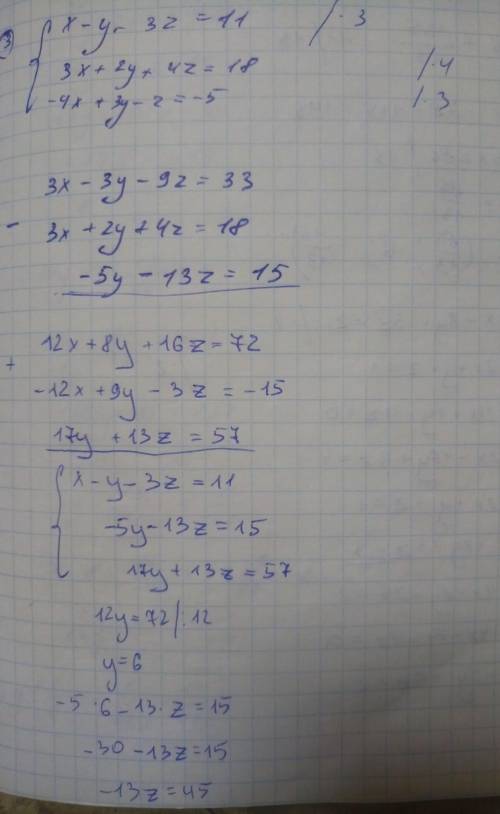 3) x-y-3z=11 /·3
3x+2y+4z=18 /·4
-4x+3y-z=-5 /·3
3x-3y-9z=33
- 3x+2y+4z=18
-5y-13z=15
12x+8y+16z=72
+ -12x+9y-3z=-15
17y+13z=57
x-y-3z=11
-5y-13z=15
17y+13z=57
12y=72/:12
y=6
-5·6-13·z=15
-30-13z=15
-13z=45